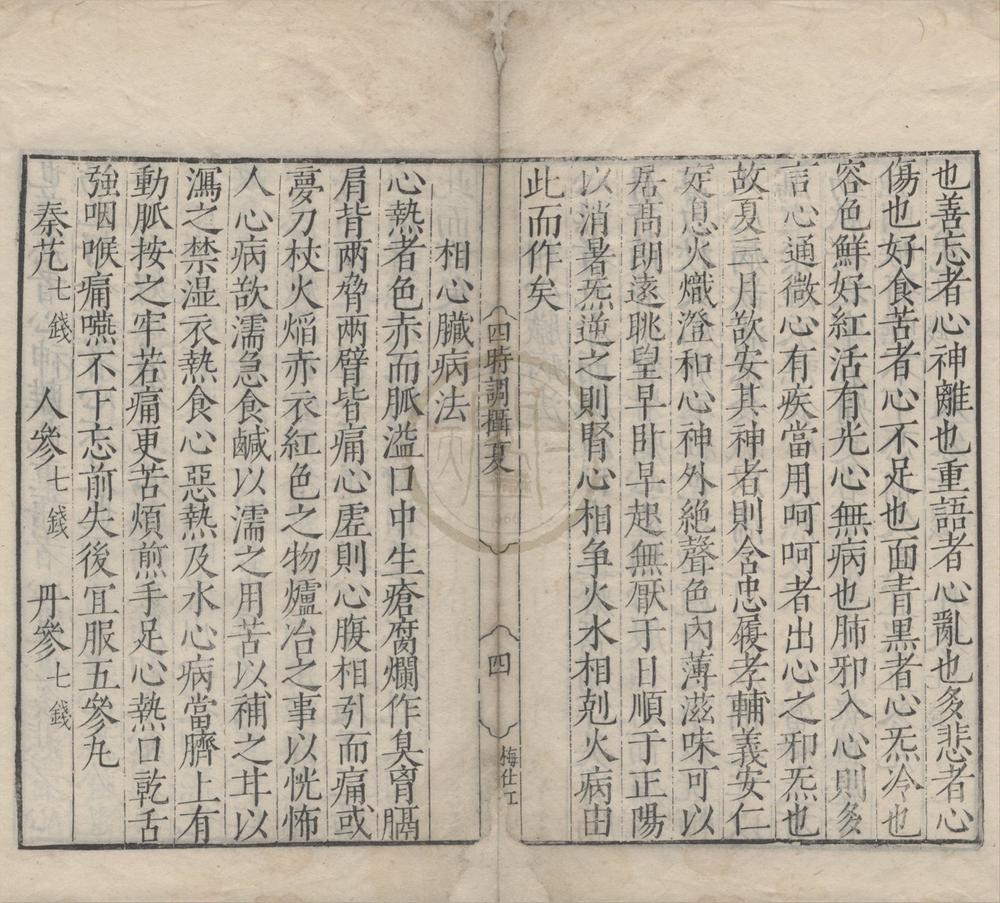 也善忘者心神離也重語者心亂也多悲者心
傷也好食苦者心不足也面青黑者心炁冷也
容色鮮好紅活有光心無病也肺邪入心則多
言心通微心有疾當用呵呵者出心之邪炁也
故夏三月欲安其神者則含忠履孝輔義安仁
定息火熾澄和心神外絶聲色內薄滋味可以
居高朗遠眺望早卧早起無厭于日順于正陽
以消暑炁逆之則腎心相争火水相剋火病由
此而作矣
四時調攝夏
四
梅仕工
相心臟病法
心熱者色赤而脈溢口中生瘡腐爛作臭胷膈
肩背兩脅兩臂皆痛心虛則心腹相引而痛或
夢刀杖火焰赤衣紅色之物爐冶之事以恍怖
人心病欲濡急食鹹以濡之用苦以補之甘以
瀉之禁湿衣熱食心惡熱及水心病當臍上有
動脈按之牢若痛更苦煩煎手足心熱口乾舌
強咽喉痛嚥不下忘前失後宜服五參丸
秦艽七錢 人參七錢 丹參七錢